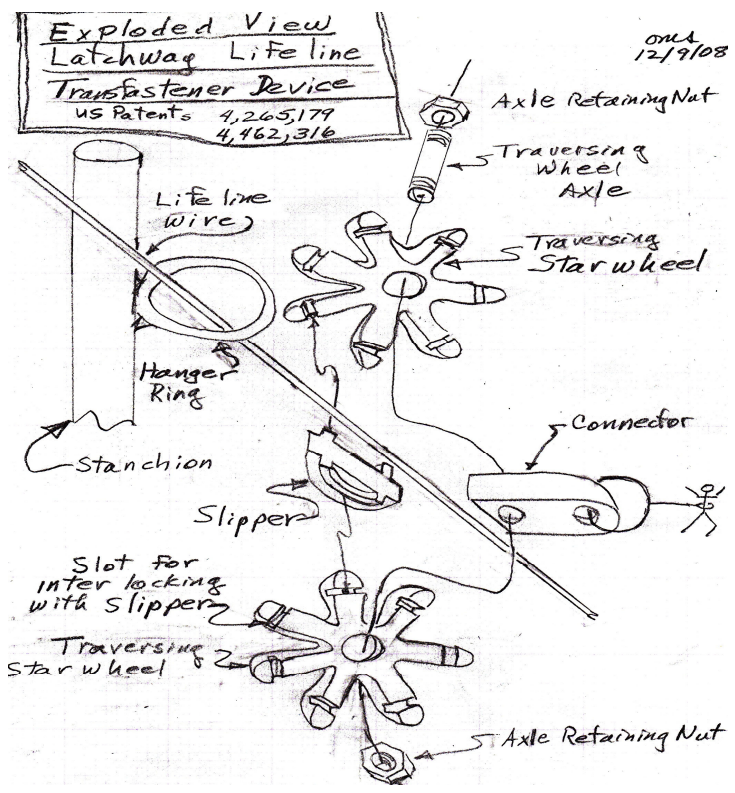 Exploded View
Latchway Lifeline
Transfastener Device
US Patents 4,265,179
4,462,316
12/9/08
Axle Retaining Nut
Traversing
Wheel
Axle
Life line
wire
Traversing
Starwheel
Hanger
Ring
Connector
Stanchion
Slipper
Slot for
inter locking
with Slipper
Traversing
Starwheel
Axle Retaining Nut